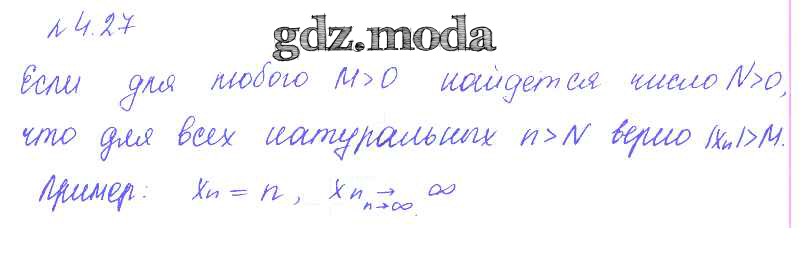 № 4.27
gdz.moda
Если для любого M>0 найдется число N>0,
что для всех натуральных n>N верно |xₙ|>M.
Пример: xₙ = n, xₙ →ₙ→∞ ∞